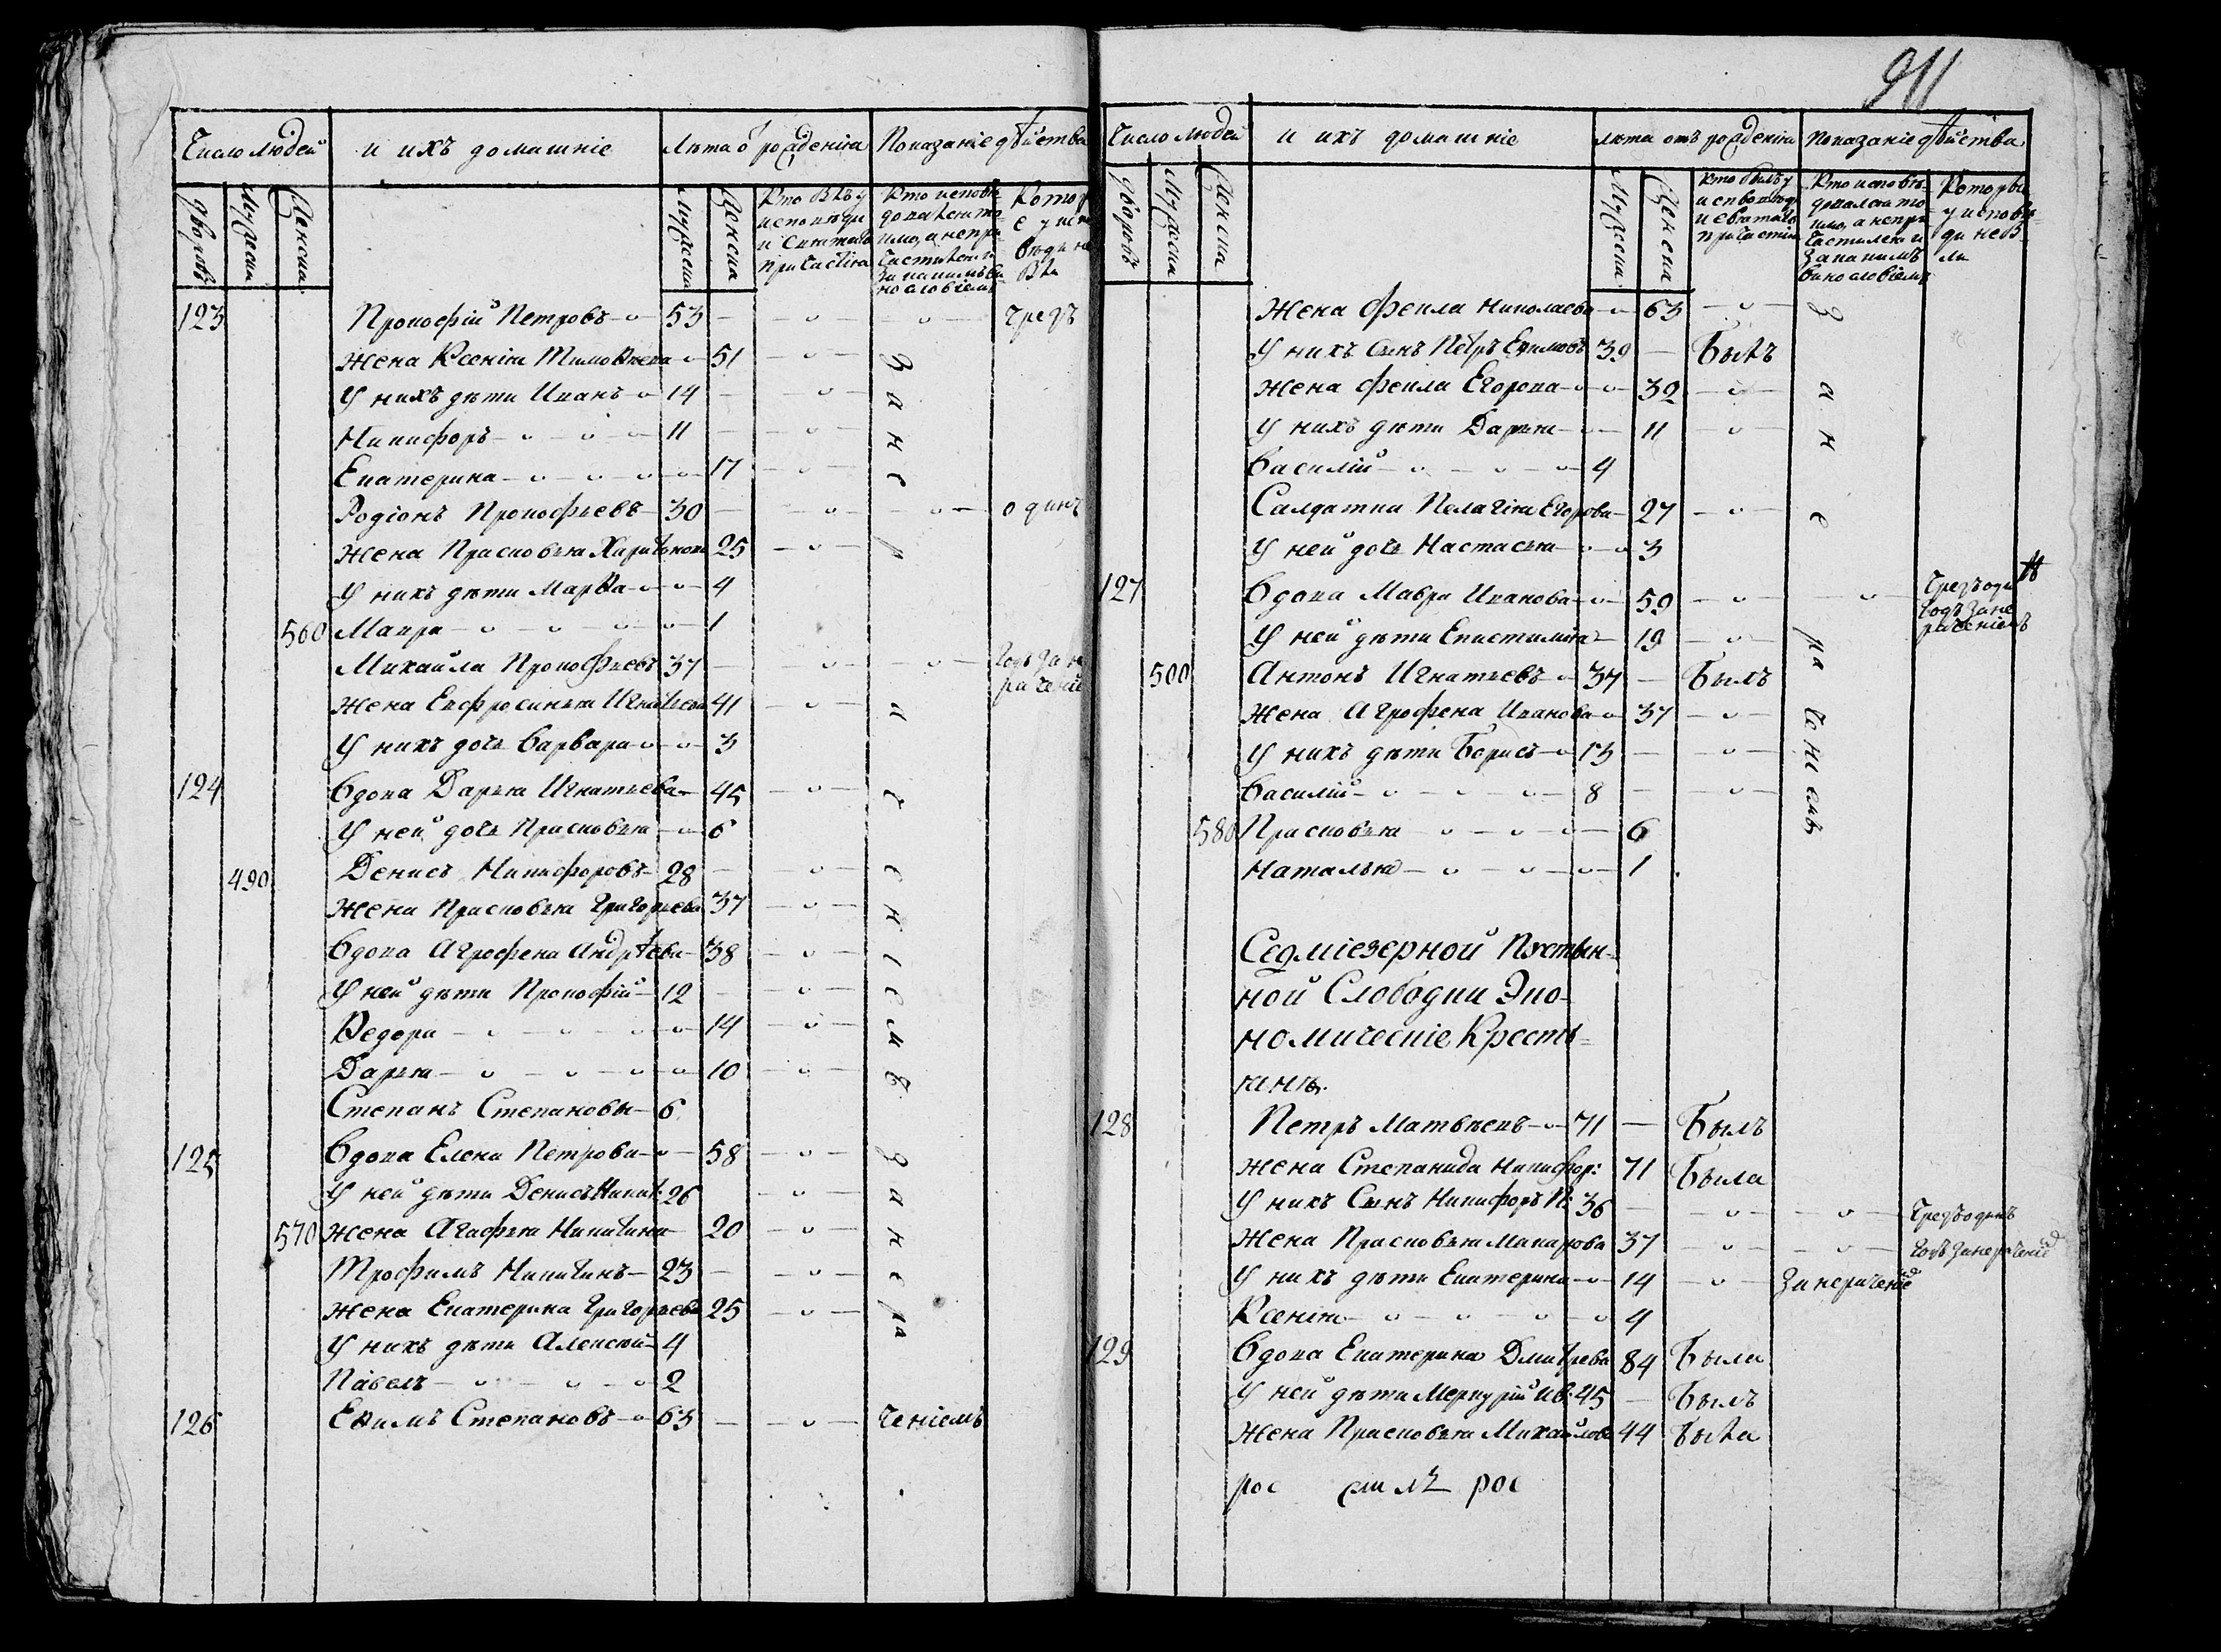 Число людей и ихъ домашніе Лѣта ѿ рожденія Показаніе дѣйства
дворовъ Мужеска Женска Мужеска Женска
Кто былъ у исповѣди и святаго причастія
Кто исповѣдовался токмо, а не причастился и за какимъ виновловіемъ
Которые у исповѣди не бы
123 Прокофій Петровъ 53 чрезъ
Жена Ксенія Тимоѳеева 51
У нихъ дѣти Иванъ 14
Никифоръ 11
Екатерина 17
Родіонъ Прокофьевъ 30 одинъ
Жена Прасковья Харитонова 25
У нихъ дѣти Марѳа 4
560 Мавра 1
Михайла Прокофьевъ 37 годъ за не раченіе
Жена Евфросинья Игнатьева 41
У нихъ дочь Варвара 3
124 Вдова Дарья Игнатьева 45
У ней дочь Прасковья 6
490 Денисъ Никифоровъ 28
Жена Прасковья Григорьева 37
Вдова Агрофена Андрѣева 38
У ней дѣти Прокофій 12
Ѳедора 14
Дарья 10
Степанъ Степановы 6
125 Вдова Елена Петрова 58
У ней дѣти Денисъ Никит: 26
570 Жена Агафья Никитина 20
Трофимъ Никитинъ 23
Жена Екатерина Григорьева 25
У нихъ дѣти Алексѣй 4
Павелъ 2
126 Еѳимъ Степановъ 63 ченіемъ
за не
за не ра
911
Число людей и ихъ домашніе лѣта отъ рожденія Показаніе дѣйства
дворовъ Мужеска Женска Мужеска Женска
Кто былъ у исповѣди и святаго причастія
Кто исповѣдовался токмо, а не причастился и за какимъ виновловіемъ
Которые у исповѣди не были
Жена Фекла Николаева 63
У нихъ Сынъ Петръ Еѳимовъ 39 Былъ
Жена Фекла Егорова 32
У нихъ дѣти Дарья 11
Василій 4
Салдатка Пелагія Егорова 27
У ней дочь Настасья 3
127 Вдова Мавра Иванова 59 Чрезъ оди нъ
годъ за не раченіемъ
У ней дѣти Епистимія 19
500 Антонъ Игнатьевъ 37 Былъ
Жена Агрофена Иванова 37
У нихъ дѣти Борисъ 13
Василій 8
580 Прасковья 6
Наталья 1
за не ра ченіемъ
Седміезерной Пустын-
ной Слободки Эко-
номическіе Кресть-
янѣ.
128 Петръ Матвѣевъ 71 Былъ
Жена Степанида Никифор: 71 Была
У нихъ Сынъ Никифоръ П: 36 Чрезъ одинъ
Жена Прасковья Макарова 37 годъ за нераченіе
У нихъ дѣти Екатерина 14 За нераченіе
Ксенія 4
129 Вдова Екатерина Дмитрева 84 Была
У ней дѣти Меркурій Ив: 45 Былъ
Жена Прасковья Михайлова 44 Была